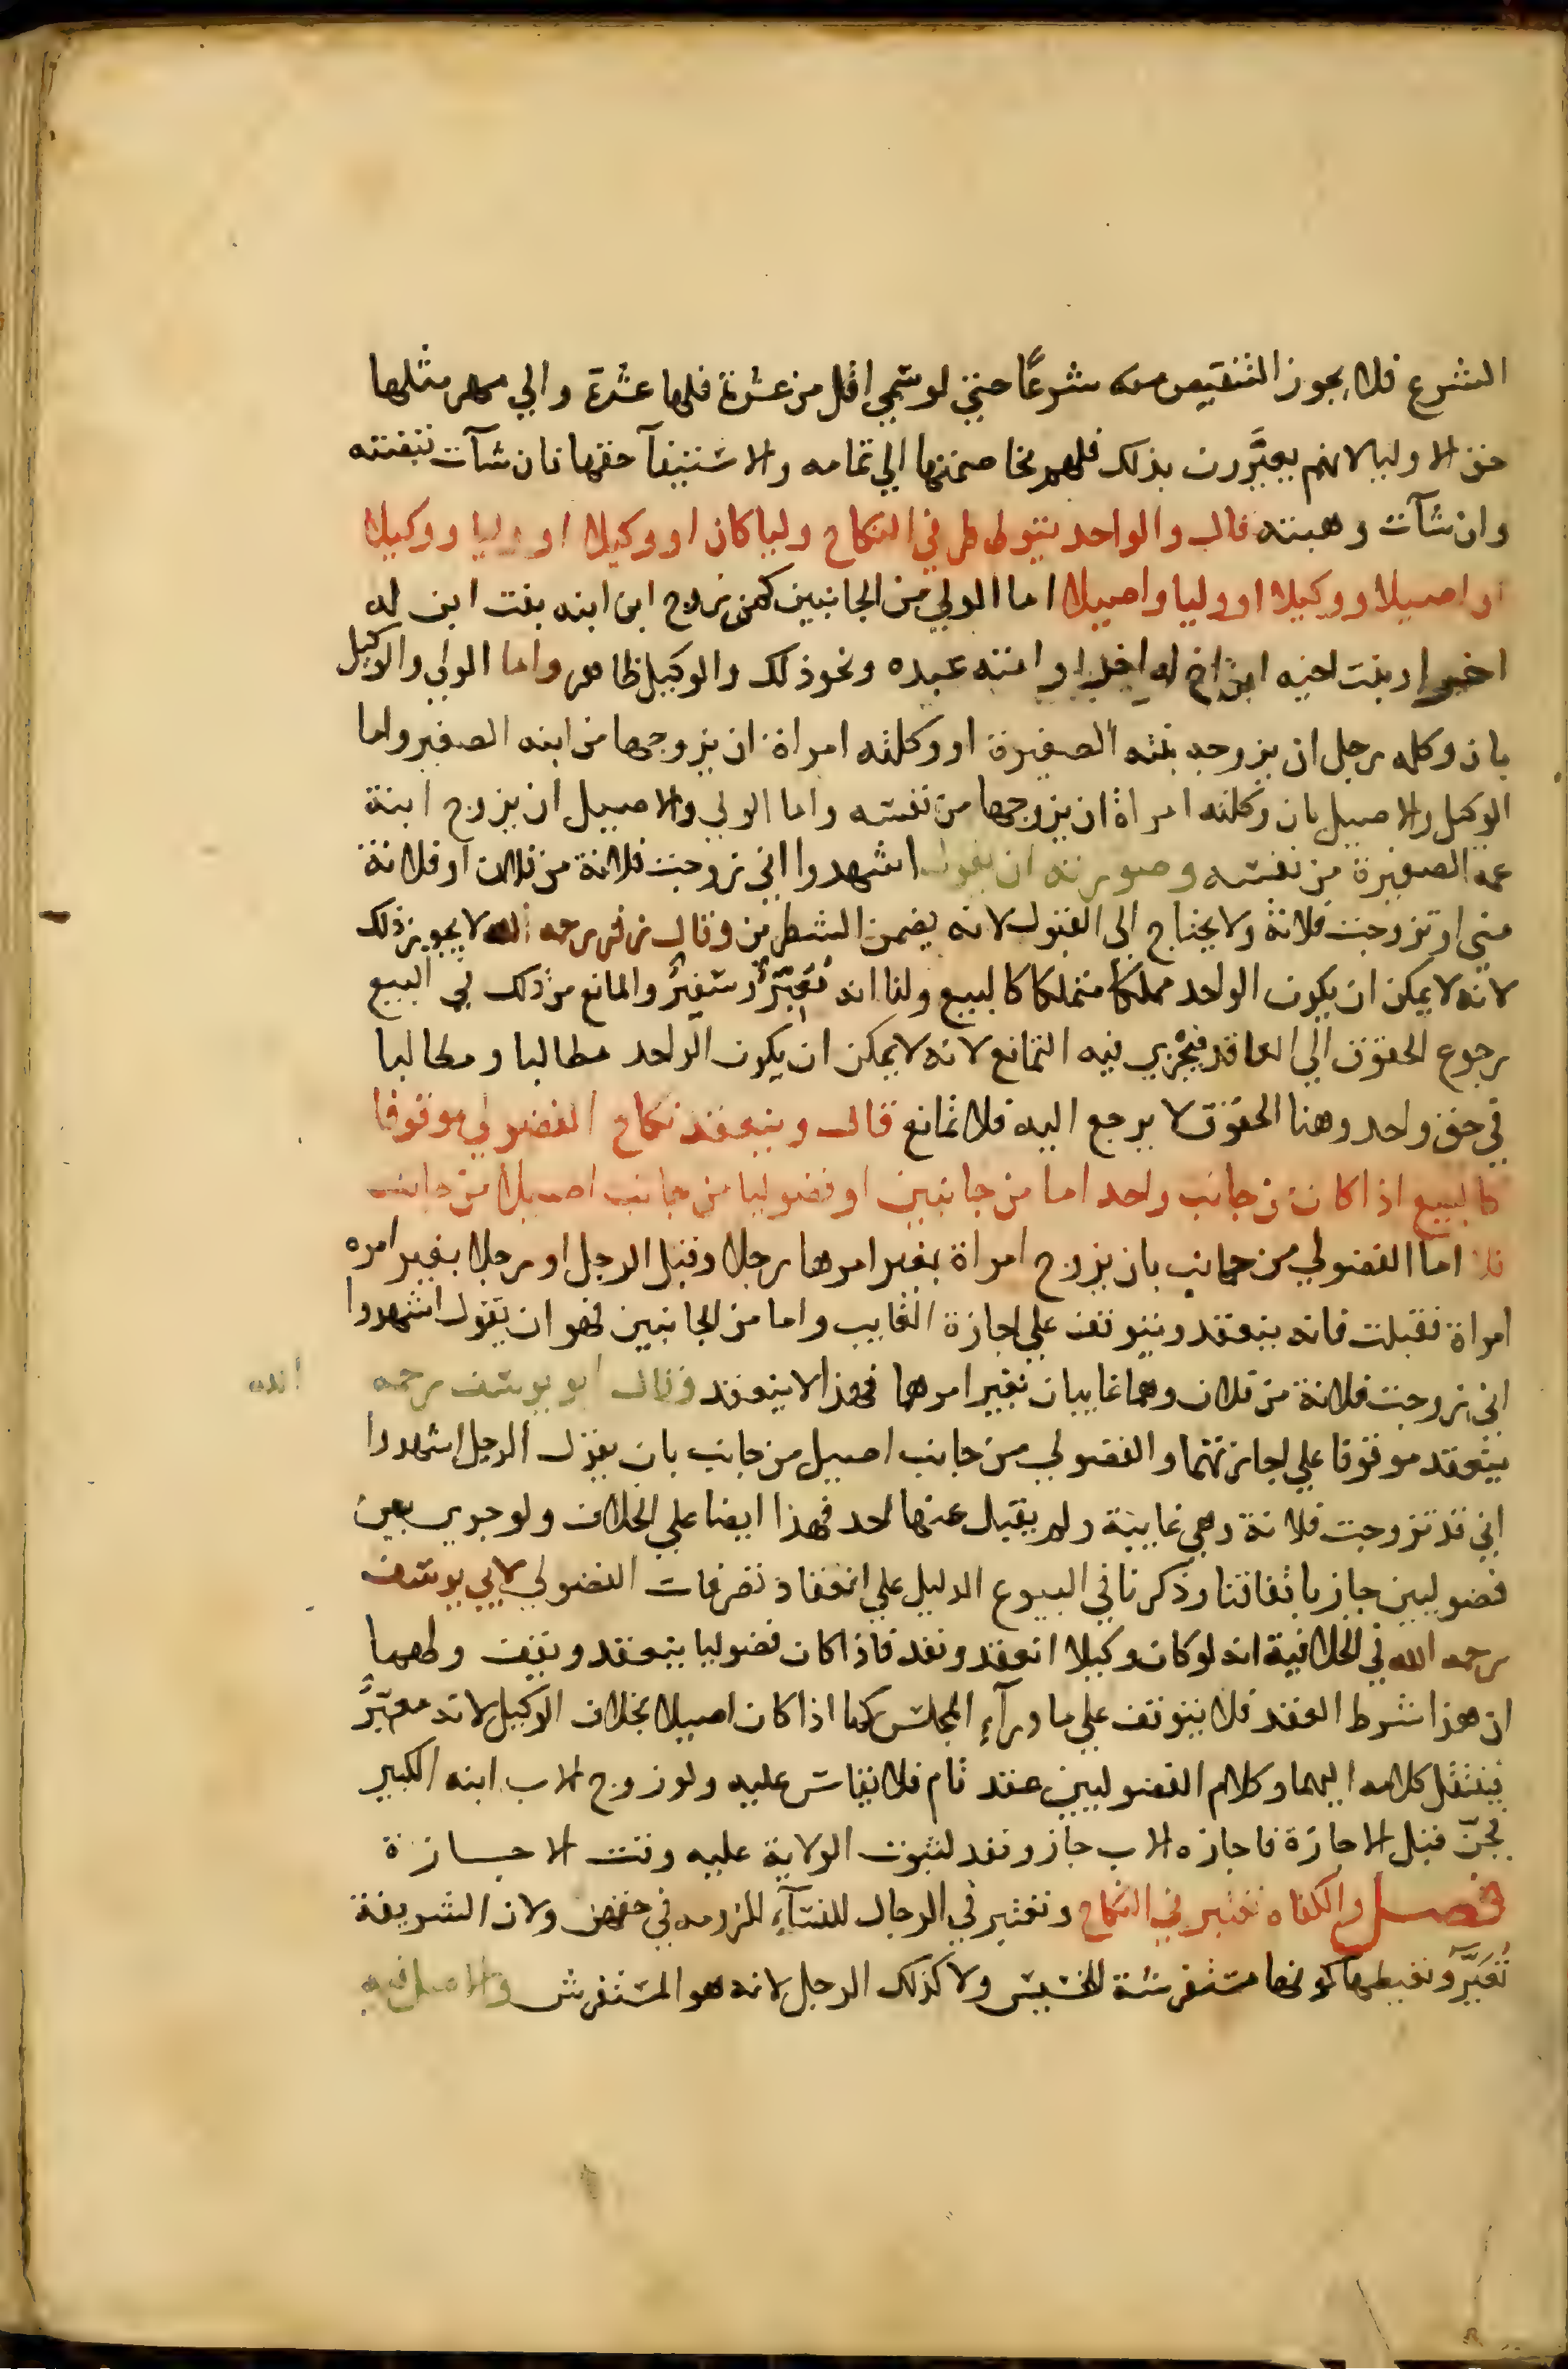 الشرع فلا يجوز التنقيص منه شرعًا حتى لو سمي اقل من عشرة فلها عشرة والي مهر مثلها
حق الاوليا لانهم يعيَّرون بذلك فلهم مخاصمتها الي تمامه والاستيفآ حقها فان شآت قبضته
وان شآت وهبته قال والواحد يتولى طرفي النكاح وليا كان او وكيلا او وليا ووكيلا
او اصيلا ووكيلا او وليا واصيلا اما الولي من الجانبين كمن زوج ابن ابنه بنت ابن له
اخر او بنت اخيه ابن اخ له اخر او امته عبده ونحو ذلك والوكيل ظاهر واما الولي والوكيل
بان وكله رجل ان يزوجه بنته الصغيرة او وكلته امراة ان يزوجها من ابنه الصغير واما
الوكيل والاصيل بان وكلته امراة ان يزوجها من نفسه واما الولي والاصيل ان يزوج ابنة
عمه الصغيرة من نفسه وصورته ان يقول اشهدوا اني زوجت فلانة من فلان او فلانة
مني او تزوجت فلانة ولا يحتاج الى القبول لانه يضمن الشطرين وقال زفر رحمه الله لا يجوز ذلك
لانه لا يمكن ان يكون الواحد مملكا متملكا كالبيع ولنا انه مُعَبِّرٌ وسَفِيرٌ والمانع من ذلك في البيع
رجوع الحقوق الي العاقد فيجري فيه التمانع لانه لا يمكن ان يكون الواحد مطالبا ومطالبا
في حق واحد وهنا الحقوق لا يرجع اليه فلا تمانع قال وينعقد نكاح الفضولي موقوفا
كالبيع اذا كان من جانب واحد اما من جانبين او فضوليا من جانب اصيلا من جانب
فلا اما الفضولي من جانب بان يزوج امراة بغير امرها رجلا وقبل الرجل او رجلا بغير امره
امراة فقبلت فانه ينعقد ويتوقف علي اجازة الغايب واما من الجانبين فهو ان يقول اشهدوا
اني زوجت فلانة من فلان وهما غايبان بغير امرهما فهذا لا ينعقد وقال ابو يوسف رحمه الله
ينعقد موقوفا علي اجازتهما والفضولي من جانب اصيل من جانب بان يقول الرجل اشهدوا
اني قد تزوجت فلانة وهي غايبة ولم يقبل عنها احد فهذا ايضا علي الخلاف ولو جري بين
فضوليين جاز باتفاقنا وذكرنا في البيوع الدليل علي انعقاد تصرفات الفضولي لابي يوسف
رحمه الله في الخلافية انه لو كان وكيلا انعقد ونفذ فاذا كان فضوليا ينعقد ويقف ولهما
ان هذا شطر العقد فلا يتوقف علي ما ورآء المجلس كما اذا كان اصيلا بخلاف الوكيل لانه معبّرٌ
فينتقل كلامه اليهما وكلام الفضوليين عقد تام فلا يقاس عليه ولو زوج الاب ابنه الكبير
فجنّ قبل الاجازة فاجازه الاب جاز ونفذ لثبوت الولاية عليه وقت الاجازة
فصل والكفاه تعتبر في النكاح وتعتبر في الرجال للنسآء للزومه في حقهن ولان الشريفة
تُعَيَّر ويغيظها كونها مستفرشة للخسيس ولا كذلك الرجل لانه هو المستفرش والاصل فيه